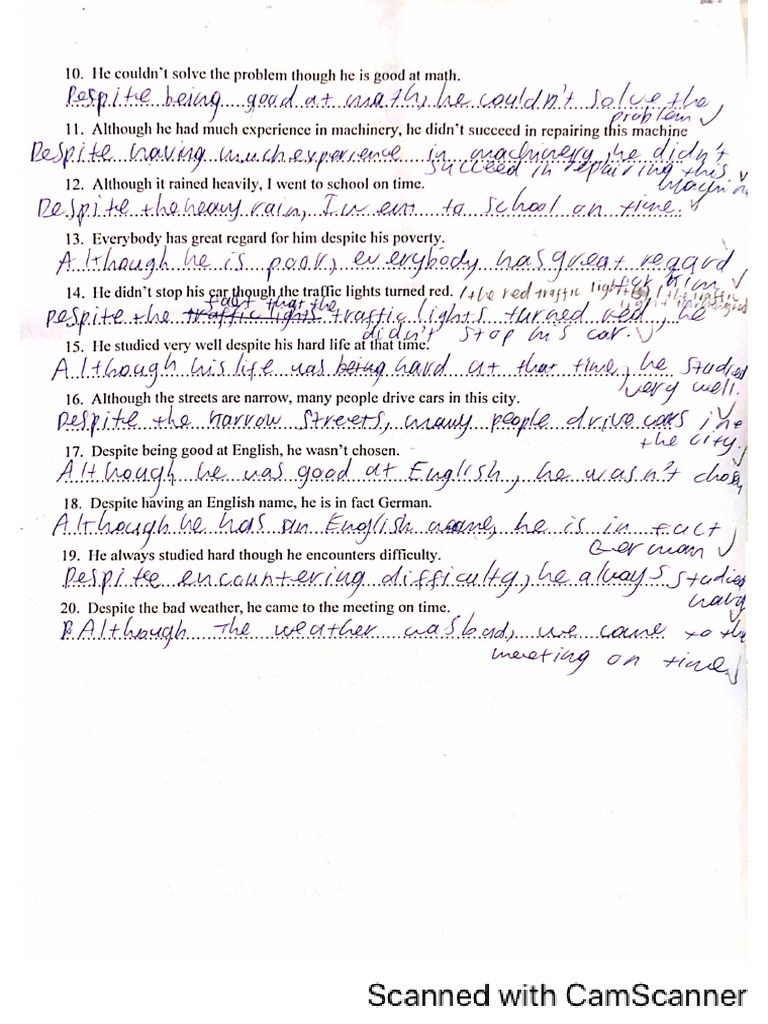 10. He couldn't solve the problem though he is good at math.
Despite being good at math, he couldn't solve the
problem
11. Although he had much experience in machinery, he didn't succeed in repairing this machine
Despite having much experience in machinery, he didn't
succeed in repairing this
machine
12. Although it rained heavily, I went to school on time.
Despite the heavy rain, I went to school on time.
13. Everybody has great regard for him despite his poverty.
Although he is poor, everybody has great regard
for him
14. He didn't stop his car though the traffic lights turned red. / the red traffic light / the traffic
fact that the
Despite the traffic lights traffic lights turned red, he
didn't stop his car.
15. He studied very well despite his hard life at that time.
Although his life was being hard at that time, he studied
very well.
16. Although the streets are narrow, many people drive cars in this city.
Despite the narrow streets, many people drive cars in
the city.
17. Despite being good at English, he wasn't chosen.
Although he was good at English, he wasn't chosen
18. Despite having an English name, he is in fact German.
Although he has an English name, he is in fact
German
19. He always studied hard though he encounters difficulty.
Despite encountering difficulty, he always studied
hard
20. Despite the bad weather, he came to the meeting on time.
Although The weather was bad, we came to the
meeting on time
Scanned with CamScanner